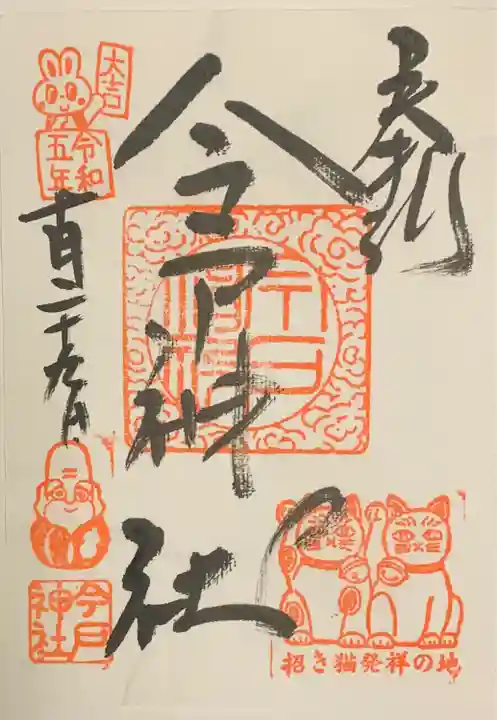 奉拝
今戸神社
大吉
令和
五年
十月二十九日
今戸
神社
招き猫発祥の地